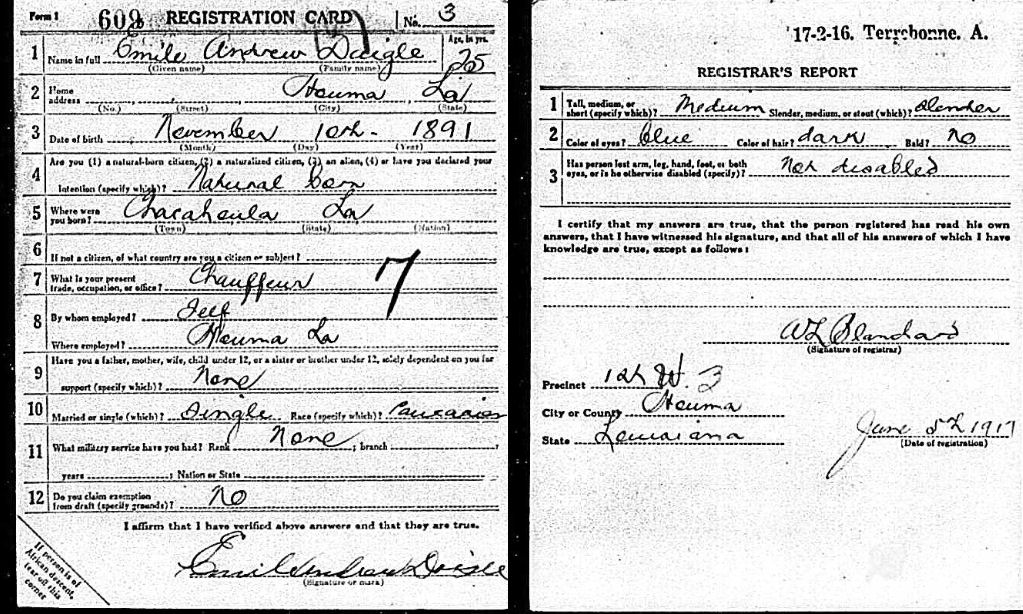 Form 1 609 REGISTRATION CARD No. 3
1 Name in full Emile Andrew Daigle Age, in yrs. 25
(Given name) (Family name)
2 Home address Houma La
(No.) (Street) (City) (State)
3 Date of birth November 10th - 1891
(Month) (Day) (Year)
4 Are you (1) a natural-born citizen, (2) a naturalized citizen, (3) an alien, (4) or have you declared your
intention (specify which)? Natural born
5 Where were you born? Chacahoula La
(Town) (State) (Nation)
6 If not a citizen, of what country are you a citizen or subject?
7 What is your present trade, occupation, or office? Chauffeur 7
8 By whom employed? Self
Where employed? Houma La
9 Have you a father, mother, wife, child under 12, or a sister or brother under 12, solely dependent on you for
support (specify which)? None
10 Married or single (which)? Single Race (specify which)? Caucasian
11 What military service have you had? Rank None ; branch ;
years ; Nation or State
12 Do you claim exemption from draft (specify grounds)? No
I affirm that I have verified above answers and that they are true.
Emile Andrew Daigle
(Signature or mark)
If person is of
African descent,
tear off this
corner
17-2-16. Terrebonne. A.
REGISTRAR'S REPORT
1 Tall, medium, or short (specify which)? Medium Slender, medium, or stout (which)? Slender
2 Color of eyes? blue Color of hair? dark Bald? No
3 Has person lost arm, leg, hand, foot, or both
eyes, or is he otherwise disabled (specify)? Not disabled
I certify that my answers are true, that the person registered has read his own
answers, that I have witnessed his signature, and that all of his answers of which I have
knowledge are true, except as follows:
A L Blanchard
(Signature of registrar)
Precinct 1st W. 3
City or County Houma
State Louisiana
June 5th 1917
(Date of registration)